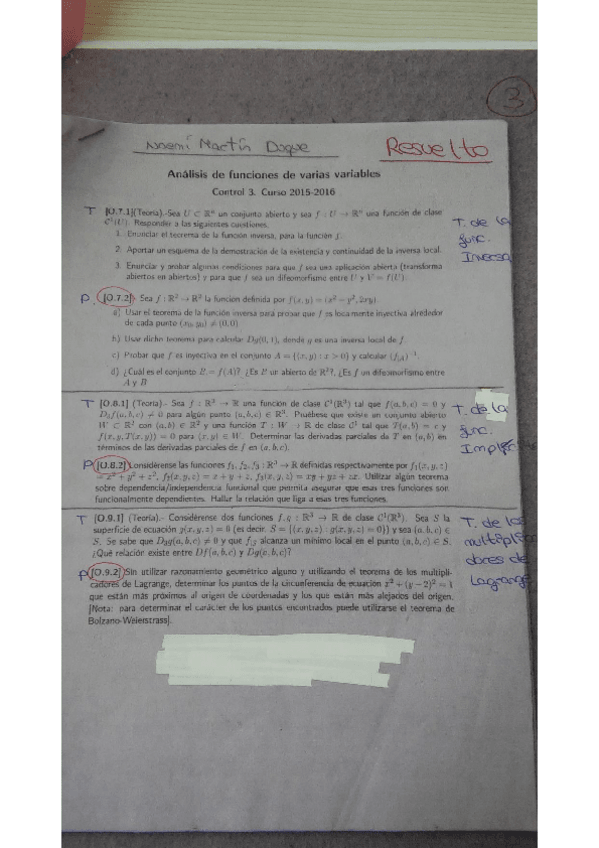 3
Noemí Martín Duque
Resuelto
Análisis de funciones de varias variables
Control 3. Curso 2015-2016
T [O.7.1](Teoría).- Sea U ⊂ ℝⁿ un conjunto abierto y sea f : U → ℝⁿ una función de clase
C¹(U). Responder a las siguientes cuestiones.
1. Enunciar el teorema de la función inversa, para la función f.
2. Aportar un esquema de la demostración de la existencia y continuidad de la inversa local.
3. Enunciar y probar algunas condiciones para que f sea una aplicación abierta (transforma
abiertos en abiertos) y para que f sea un difeomorfismo entre U y V = f(U).
T. de la
func.
Inversa
P. [O.7.2]- Sea f : ℝ² → ℝ² la función definida por f(x, y) = (x² − y², 2xy).
a) Usar el teorema de la función inversa para probar que f es localmente inyectiva alrededor
de cada punto (x₀, y₀) ≠ (0, 0)
b) Usar dicho teorema para calcular Dg(0, 1), donde g es una inversa local de f.
c) Probar que f es inyectiva en el conjunto A = {(x, y) : x > 0} y calcular (f|A)⁻¹.
d) ¿Cuál es el conjunto B = f(A)? ¿Es B un abierto de ℝ²?. ¿Es f un difeomorfismo entre
A y B
T [O.8.1] (Teoría).- Sea f : ℝ³ → ℝ una función de clase C¹(ℝ³) tal que f(a, b, c) = 0 y
D₃f(a, b, c) ≠ 0 para algún punto (a, b, c) ∈ ℝ³. Pruébese que existe un conjunto abierto
W ⊂ ℝ² con (a, b) ∈ ℝ² y una función T : W → ℝ de clase C¹ tal que T(a, b) = c y
f(x, y, T(x, y)) = 0 para (x, y) ∈ W. Determinar las derivadas parciales de T en (a, b) en
términos de las derivadas parciales de f en (a, b, c).
T. de la
func.
Implíc
P [O.8.2] Considérense las funciones f₁, f₂, f₃ : ℝ³ → ℝ definidas respectivamente por f₁(x, y, z)
= x² + y² + z², f₂(x, y, z) = x + y + z, f₃(x, y, z) = xy + yz + zx. Utilizar algún teorema
sobre dependencia/independencia funcional que permita asegurar que esas tres funciones son
funcionalmente dependientes. Hallar la relación que liga a esas tres funciones.
T [O.9.1] (Teoría).- Considérense dos funciones f, g : ℝ³ → ℝ de clase C¹(ℝ³). Sea S la
superficie de ecuación g(x, y, z) = 0 (es decir, S = {(x, y, z) : g(x, y, z) = 0}) y sea (a, b, c) ∈
S. Se sabe que D₃g(a, b, c) ≠ 0 y que f|S alcanza un mínimo local en el punto (a, b, c) ∈ S.
¿Qué relación existe entre Df(a, b, c) y Dg(a, b, c)?
T. de los
multiplic
adores de
Lagrange
P [O.9.2] Sin utilizar razonamiento geométrico alguno y utilizando el teorema de los multipli-
cadores de Lagrange, determinar los puntos de la circunferencia de ecuación x² + (y − 2)² = 1
que están más próximos al origen de coordenadas y los que están más alejados del origen.
[Nota: para determinar el carácter de los puntos encontrados puede utilizarse el teorema de
Bolzano-Weierstrass].